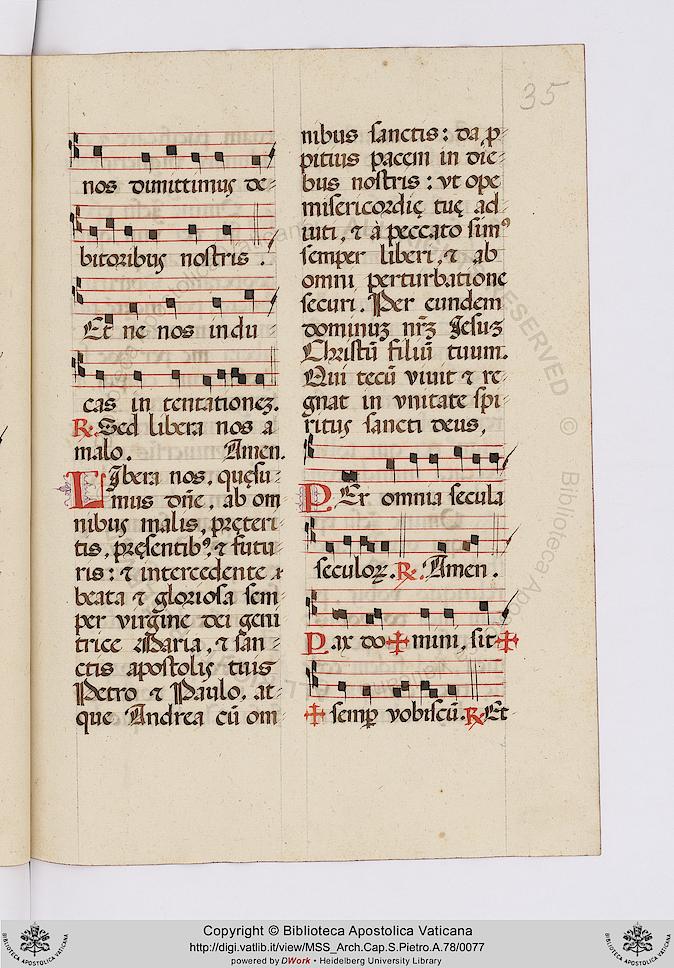 35
nos dimittimus de-
bitoribus nostris.
Et ne nos indu-
cas in tentationez.
℟. Sed libera nos a
malo. Amen.
LIbera nos, quęsu-
mus dñe, ab om-
nibus malis, pręteri-
tis, pręsentib⁹, ⁊ futu-
ris: ⁊ intercedente
beata ⁊ gloriosa sem-
per virgine dei geni-
trice Maria, ⁊ san-
ctis apostolis tuis
Petro ⁊ Paulo, at-
que Andrea cū om-
nibus sanctis: da, p-
pitius pacem in die-
bus nostris: vt ope
misericordię tuę ad-
iuti, ⁊ à peccato sim⁹
semper liberi, ⁊ ab
omni perturbatione
securi. Per eundem
dominuz nr̄z Jesuz
Christū filiū tuum.
Qui tecū viuit ⁊ re-
gnat in vnitate spi-
ritus sancti deus,
PEr omnia secula
seculoꝝ. ℟. Amen.
Pax do✠mini, sit✠
✠semꝑ vobiscū. ℟. Et
Copyright © Biblioteca Apostolica Vaticana
http://digi.vatlib.it/view/MSS_Arch.Cap.S.Pietro.A.78/0077
powered by DWork • Heidelberg University Library